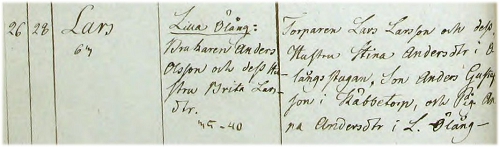 26 28 Lars
6/7
Lilla Ölång:
Brukaren Anders
Olsson och dess Hu-
stru Brita Lars-
dtr.
35-40
Torparen Lars Larsson och dess
Hustru Stina Andersdtr i Ö-
långsstugan, Son Anders Gustafs-
son i Räbbetorp, och Pig. An-
na Andersdtr i L. Ölång